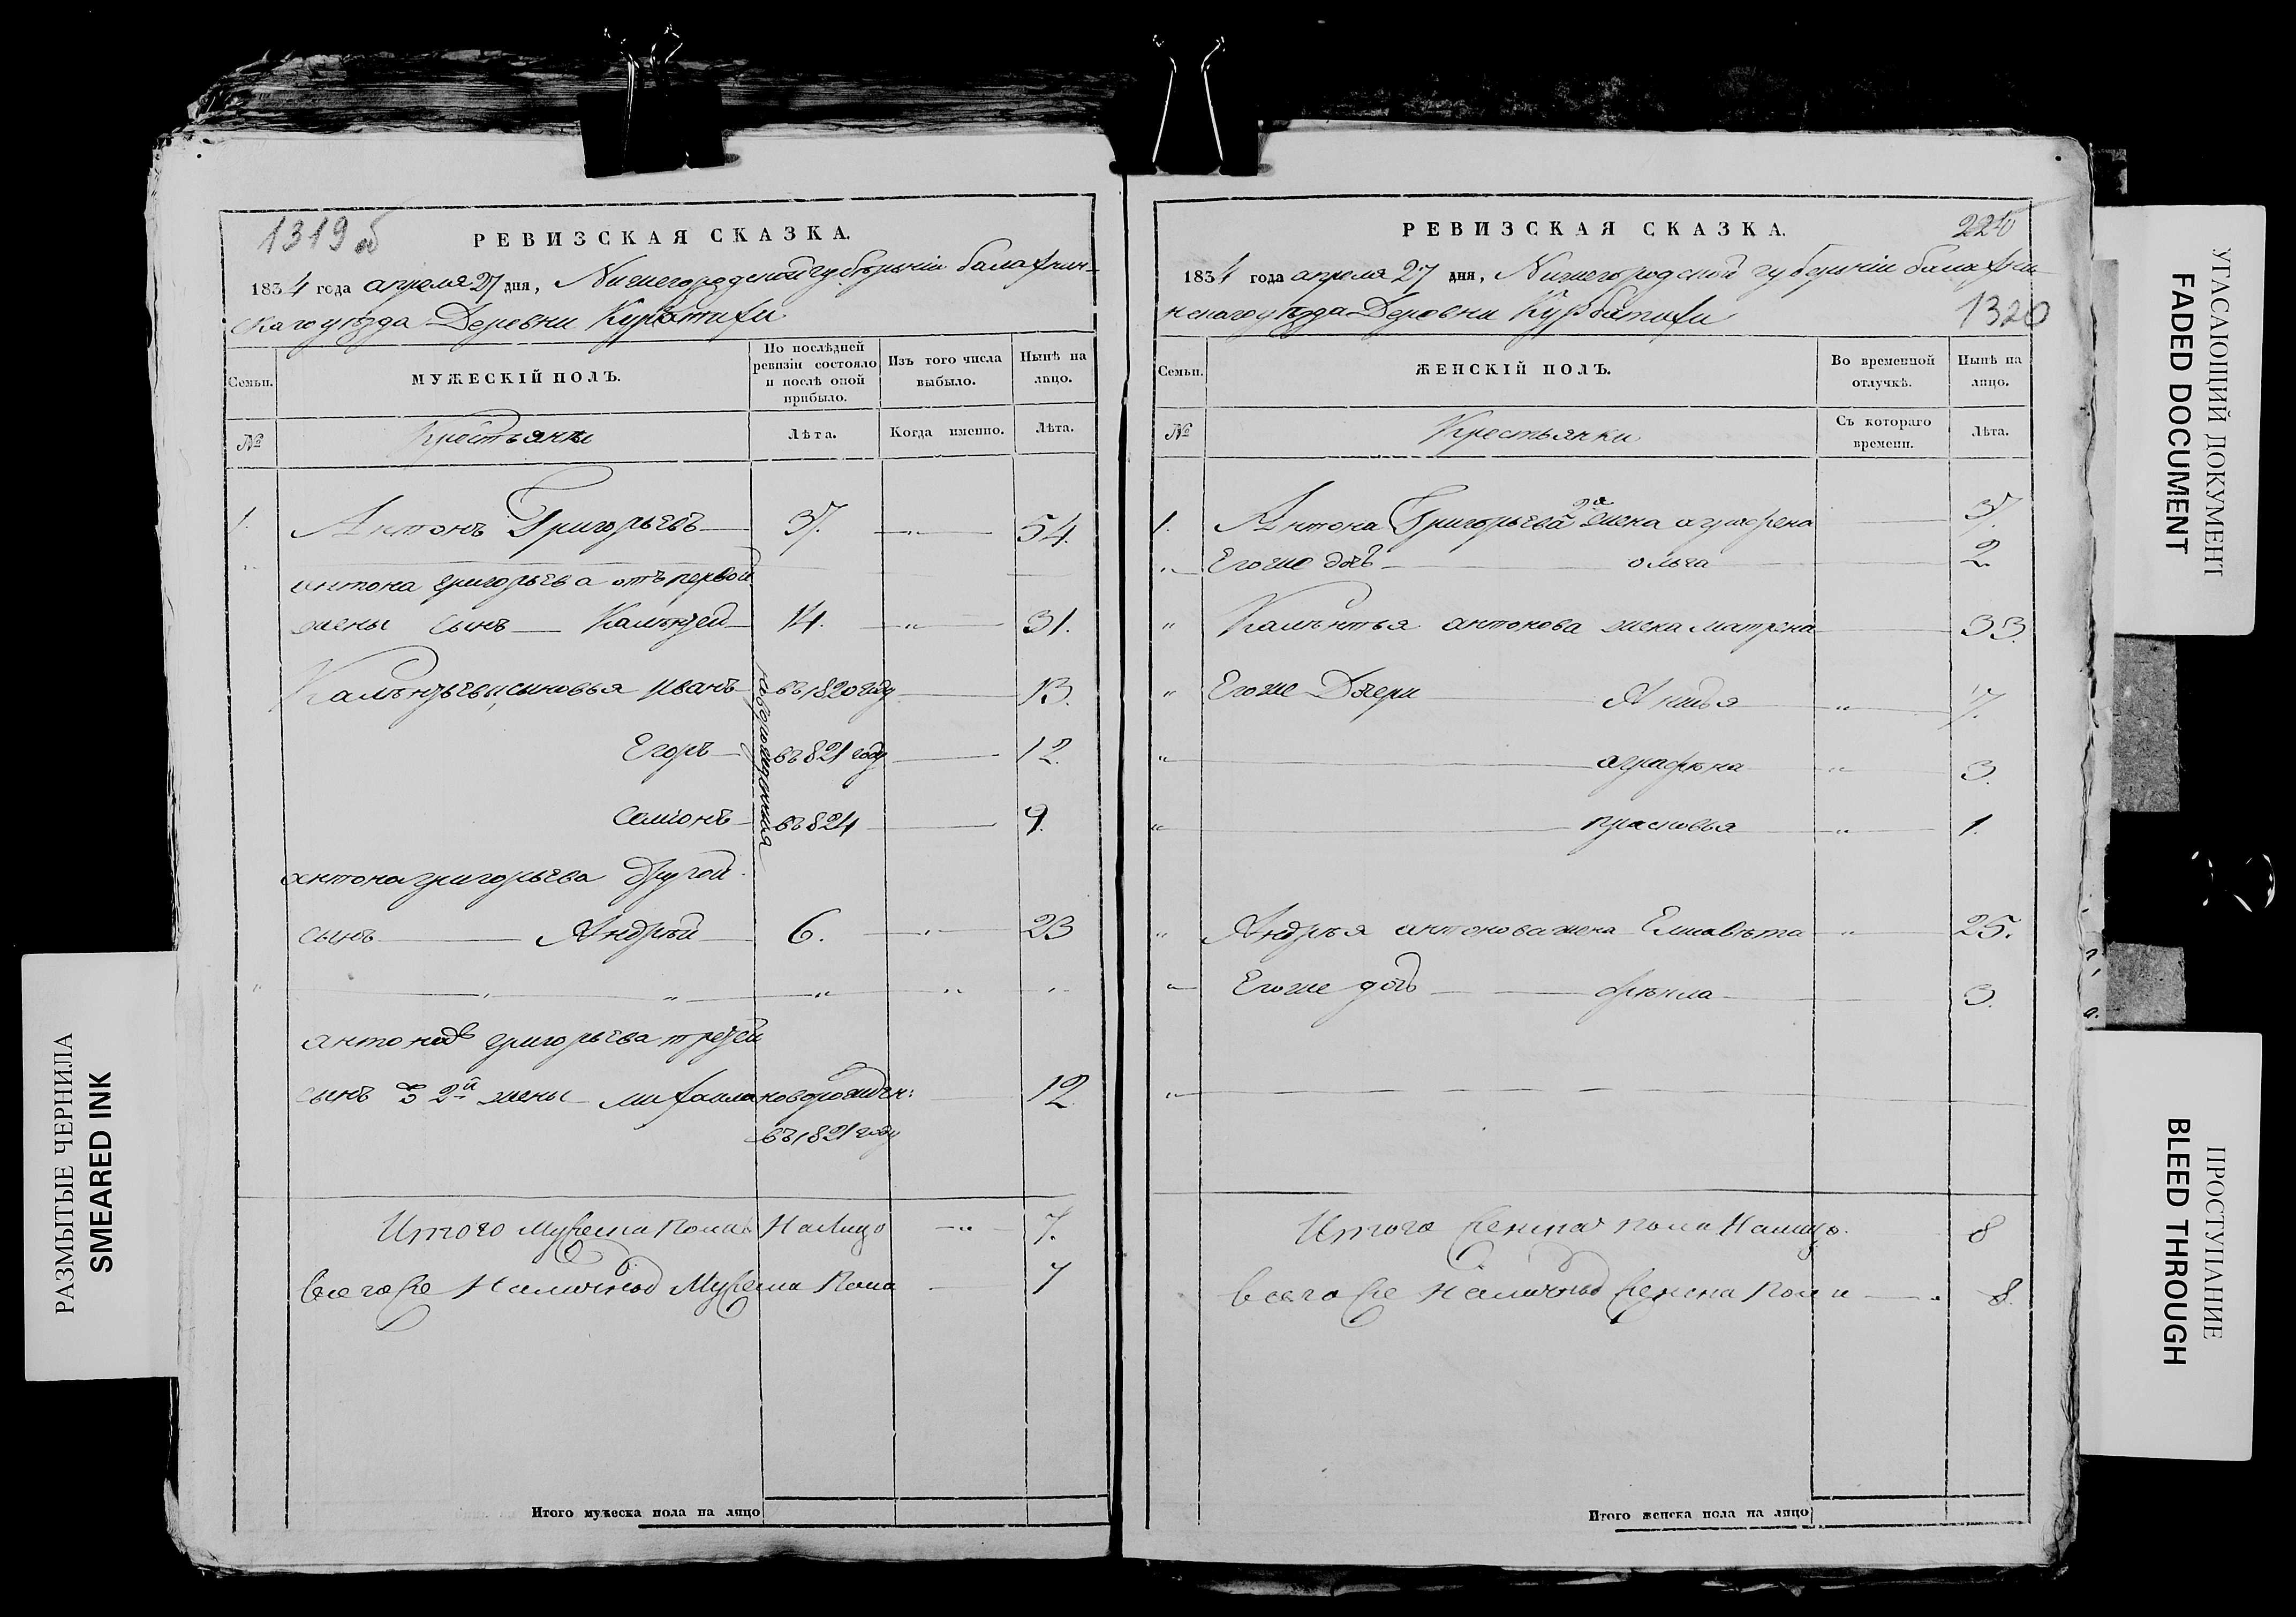 1319 об
РЕВИЗСКАЯ СКАЗКА.
1834 года апреля 27 дня, Нижегородской губерніи балахнин-
скаго уѣзда Деревни Курбатихи
Семьи.
МУЖЕСКІЙ ПОЛЪ.
По послѣдней ревизіи состояло и послѣ оной прибыло.
Изъ того числа выбыло.
Нынѣ на лицо.
№
Крестьяне
Лѣта.
Когда именно.
Лѣта.
1. Антонъ Григорьевъ 37. „ 54.
антона григорьева отъ первой
жены сынъ Калѣнтей 14. „ 31.
сыновья иванъ въ 1820 году 13.
Егоръ въ 821 году 12.
Семіонъ въ 824 9.
новорожденныя
антона григорьева другой
сынъ Андрей 6. „ 23
„ „ „ „ „ „
григорьева третей
сынъ 2й жены михаила новорожден: 12
въ 1821 году
Итого Мужеска пола На Лицо „ 7.
Всего же Наличнод Мужеска Пола 7
Итого мужеска пола на лицо
РЕВИЗСКАЯ СКАЗКА.
1834 года апреля 27 дня, Нижегородской губерніи балахни-
нскаго уѣзда Деревни Курбатихи
1320
Семьи.
ЖЕНСКІЙ ПОЛЪ.
Во временной отлучкѣ.
Нынѣ на лицо.
№
Крестьянки
Съ котораго времени.
Лѣта.
1. Антона Григорьева 2я жена аграфена 37.
„ Егоже дочь ольга 2
„ Калѣнтья антонова жена матрена 33.
„ Егоже Дочери „ 7.
„ аграфѣна „ 3.
„ прасковья „ 1.
„ Андрѣя антонова жена Елисавѣта „ 25.
„ Егоже дочь 3.
„
Итого женска пола На лицо. 8
всего же Наличнод женска пола 8.
Итого женска пола на лицо
РАЗМЫТЫЕ ЧЕРНИЛА
SMEARED INK
УГАСАЮЩИЙ ДОКУМЕНТ
FADED DOCUMENT
ПРОСТУПАНИЕ
BLEED THROUGH